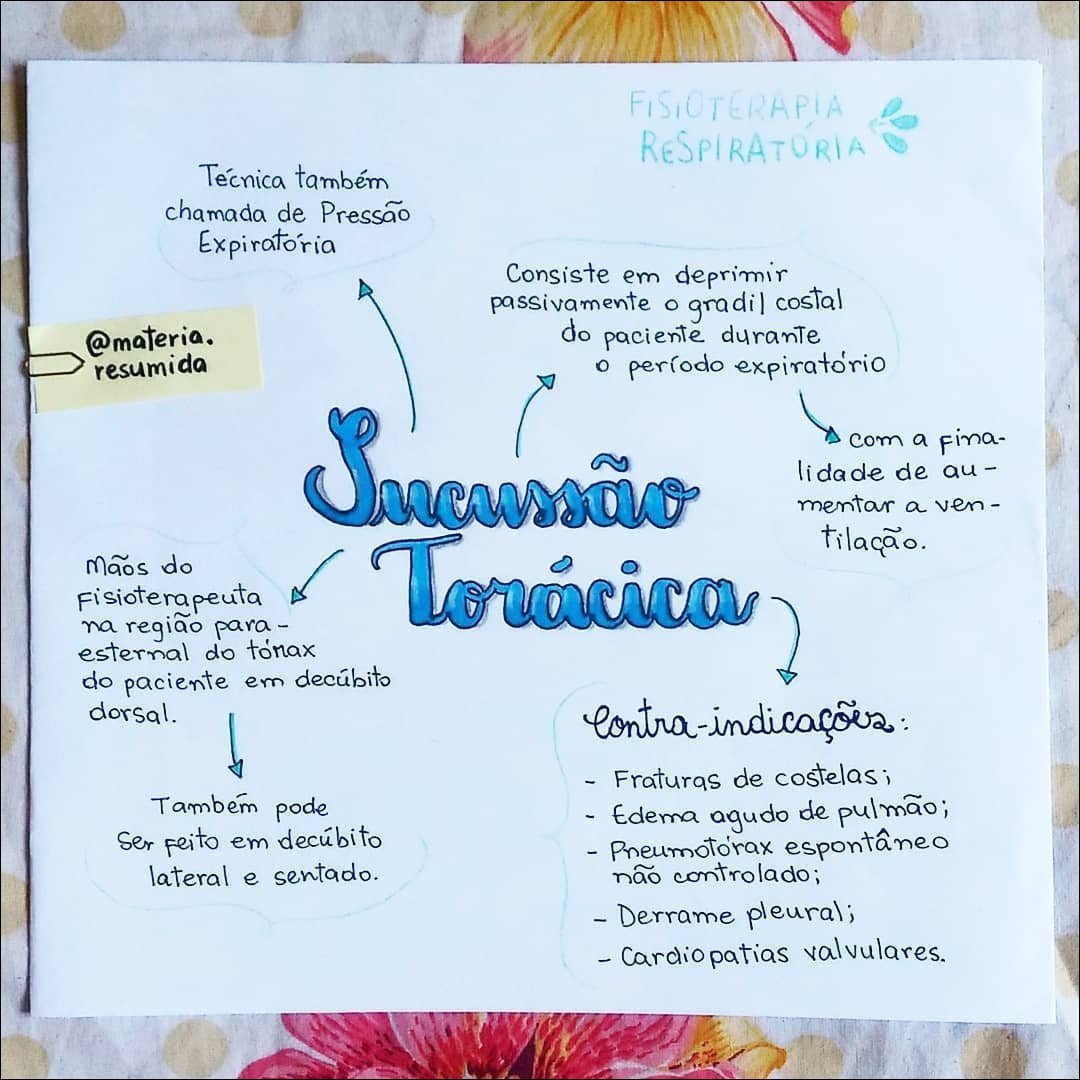 FISIOTERAPIA
RESPIRATÓRIA
Técnica também
chamada de Pressão
Expiratória
Consiste em deprimir
passivamente o gradil costal
do paciente durante
o período expiratório
@materia.
resumida
com a fina-
lidade de au-
mentar a ven-
tilação.
Sucussão
Torácica
Mãos do
Fisioterapeuta
na região para-
esternal do tórax
do paciente em decúbito
dorsal.
Também pode
ser feito em decúbito
lateral e sentado.
Contra-indicações:
- Fraturas de costelas;
- Edema agudo de pulmão;
- Pneumotórax espontâneo
não controlado;
- Derrame pleural;
- Cardiopatias valvulares.